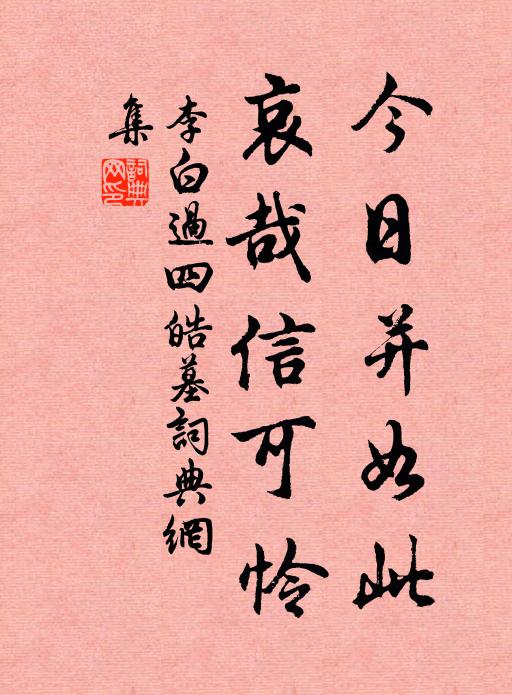 今日并如此
哀哉信可怜
李白過四皓墓詞典網
集
詞典
网印